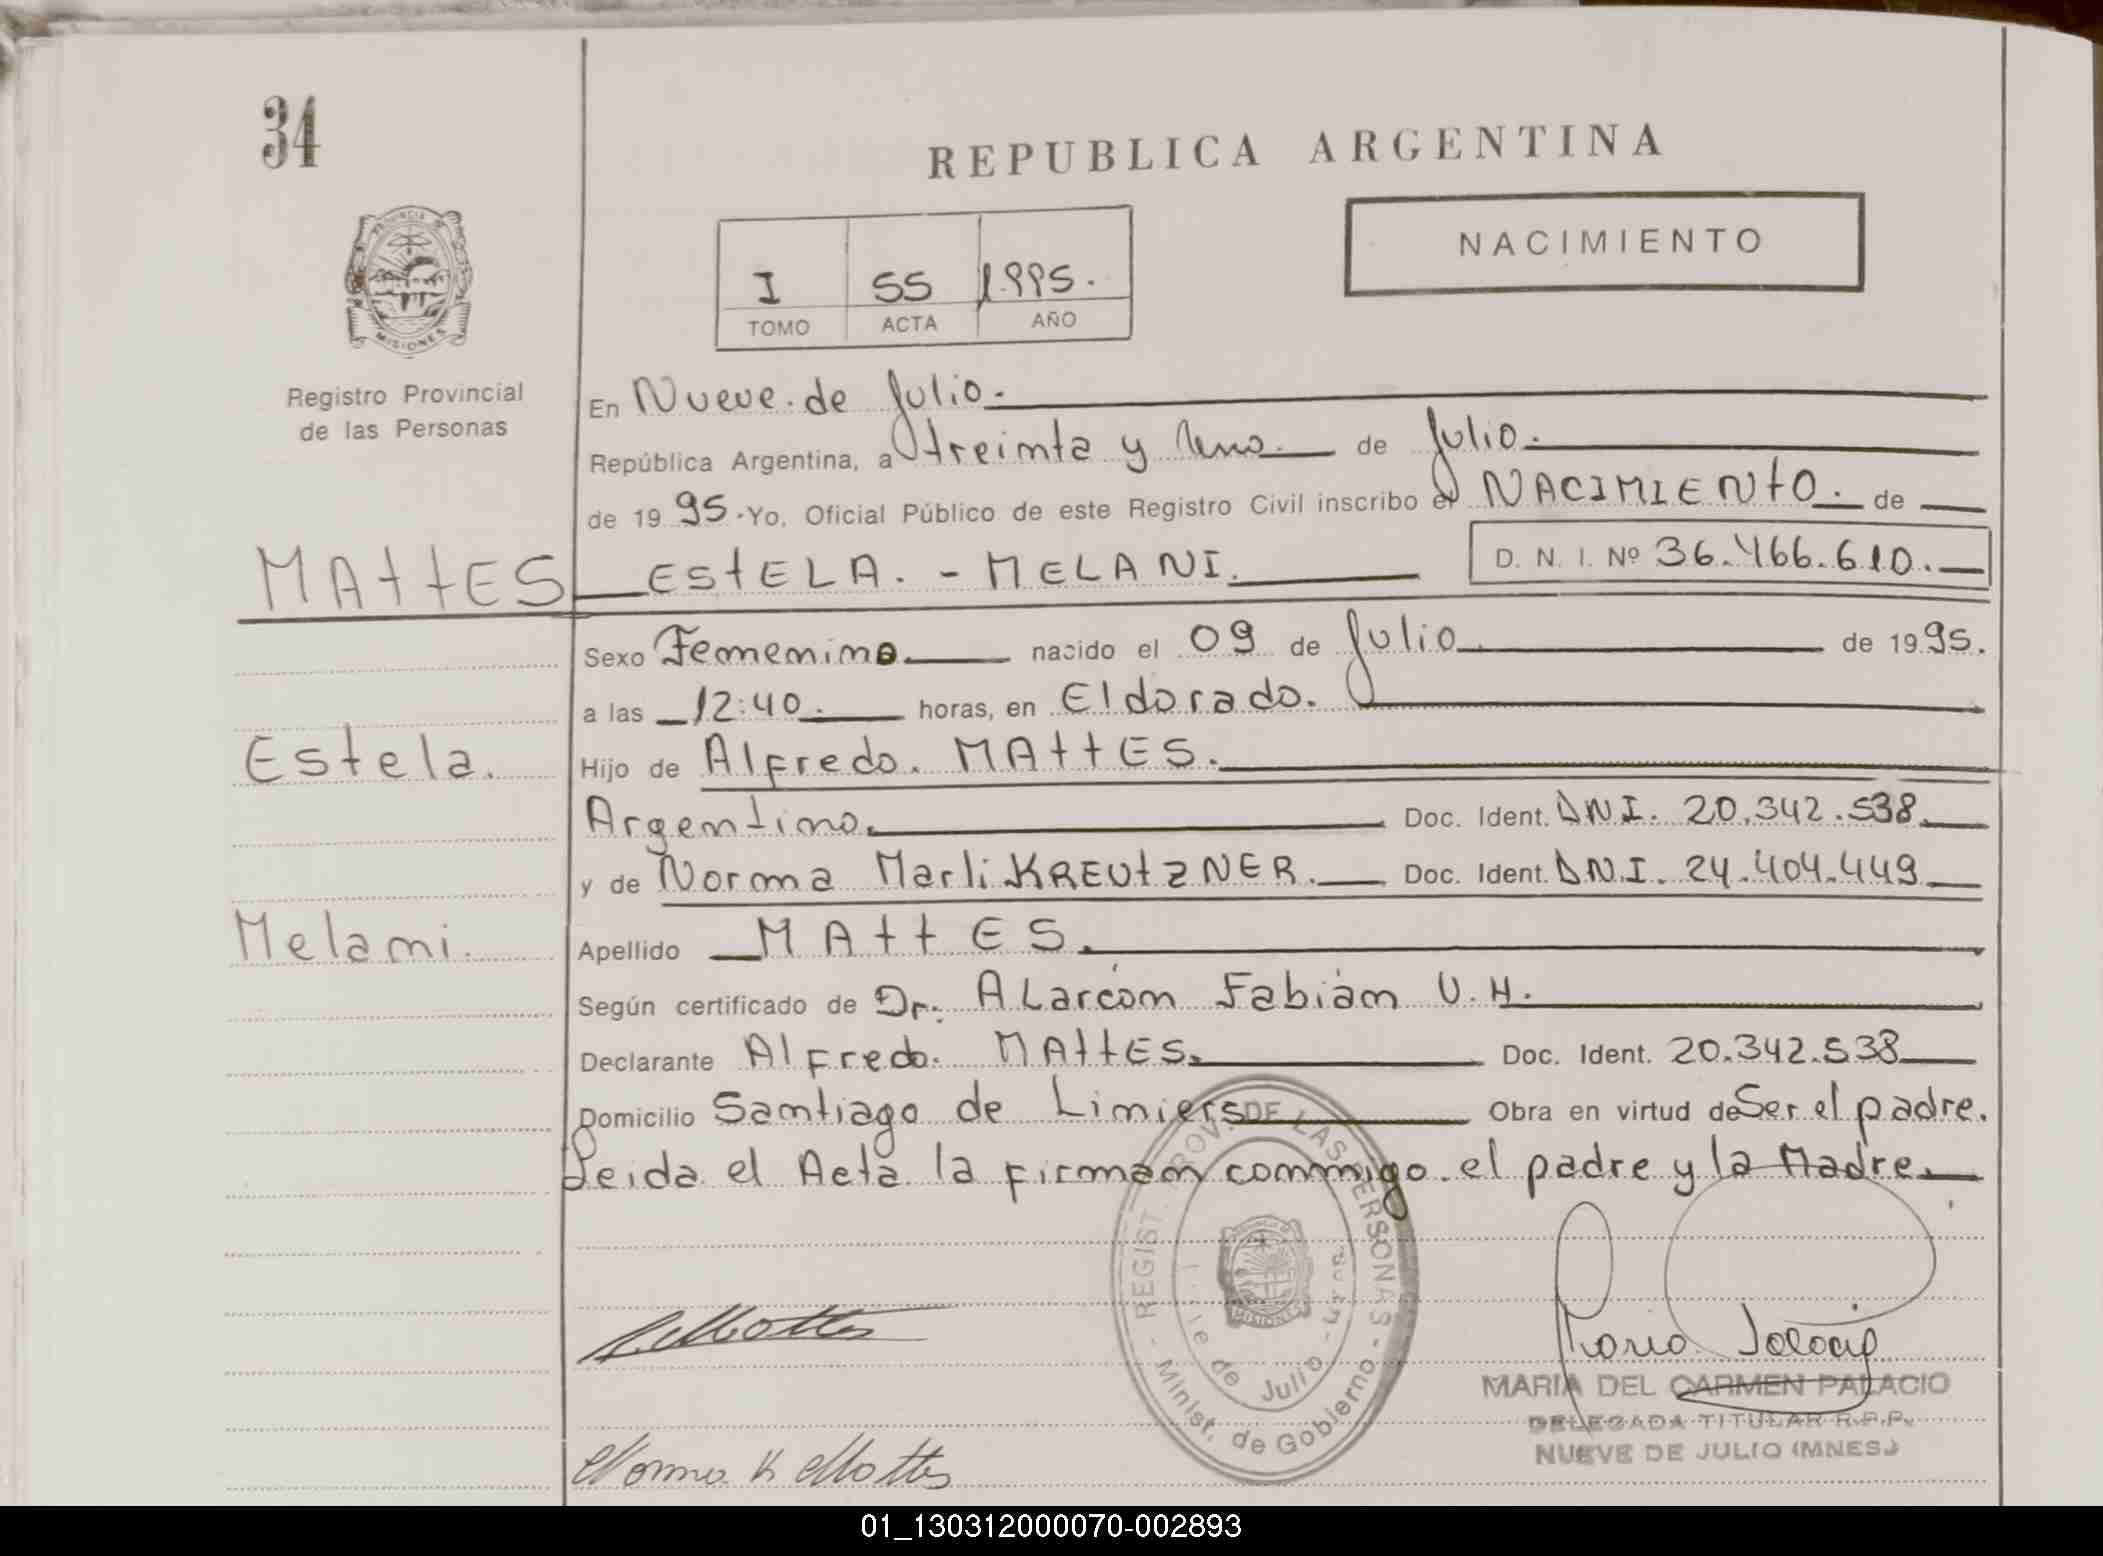 34
REPUBLICA ARGENTINA
NACIMIENTO
PROVINCIA DE
MISIONES
I 55 1995.
TOMO ACTA AÑO
Registro Provincial
de las Personas
En Nueve de Julio.
República Argentina, a treinta y Uno. de Julio.
de 1995. Yo, Oficial Público de este Registro Civil inscribo el NACIMIENTO. de
MATTES ESTELA. - MELANI. D. N. I. Nº 36.466.610.
Sexo Femenino. nacido el 09 de Julio. de 1995.
a las 12:40. horas, en Eldorado.
Estela. Hijo de Alfredo. MATTES.
Argentino. Doc. Ident. DNI. 20.342.538.
y de Norma Marli KREUTZNER. Doc. Ident. DNI. 24.404.449
Melani. Apellido MATTES.
Según certificado de Dr. Alarcón Fabián U.H.
Declarante Alfredo. MATTES. Doc. Ident. 20.342.538
Domicilio Santiago de Limiers Obra en virtud de Ser el padre.
Leida el Acta la firman conmigo. el padre y la Madre.
REGIST. PROV. DE LAS PERSONAS - Minist. de Gobierno -
de Julio
Mattes
Norma K Mattes
Maria Palacio
MARIA DEL CARMEN PALACIO
DELEGADA TITULAR R.P.P.
NUEVE DE JULIO (MNES.)
01_130312000070-002893